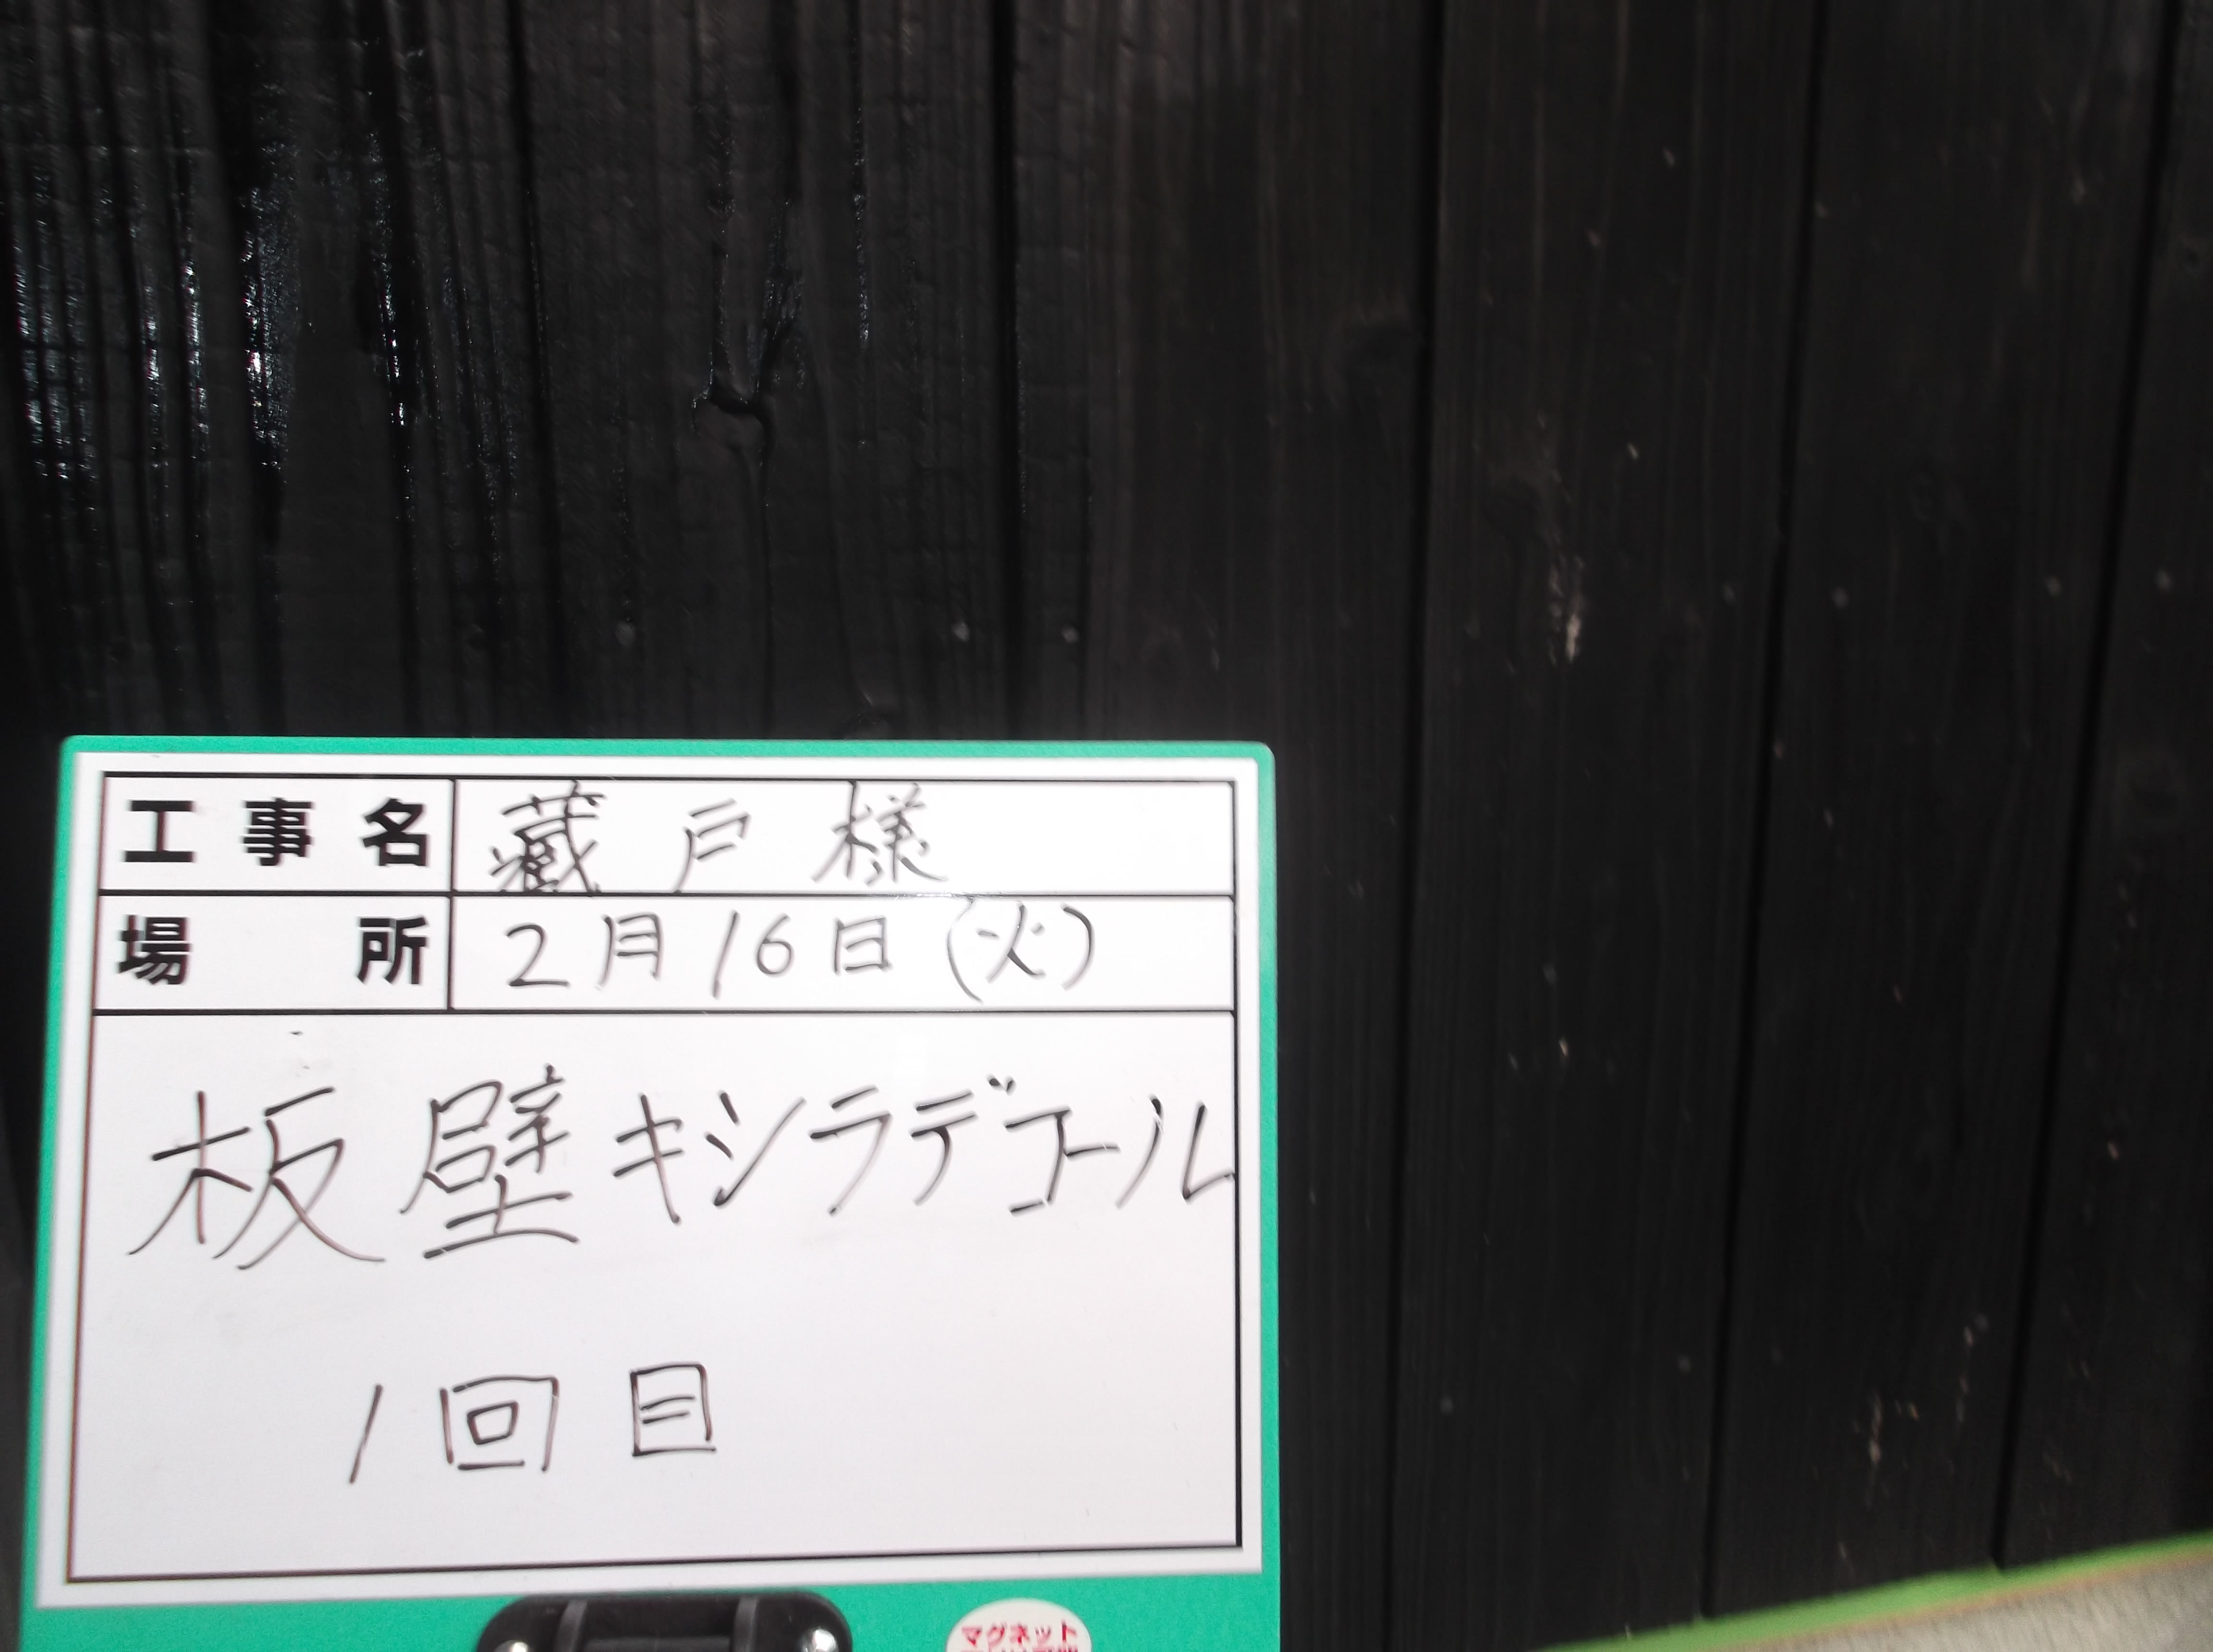 工事名 藏戸様
場所 2月16日(火)
板壁キシラデコール
1回目
マグネット